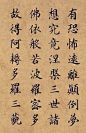 有恐怖遠離顛倒夢
想究竟涅槃三世諸
佛依般若波羅蜜多
故得阿耨多羅三藐